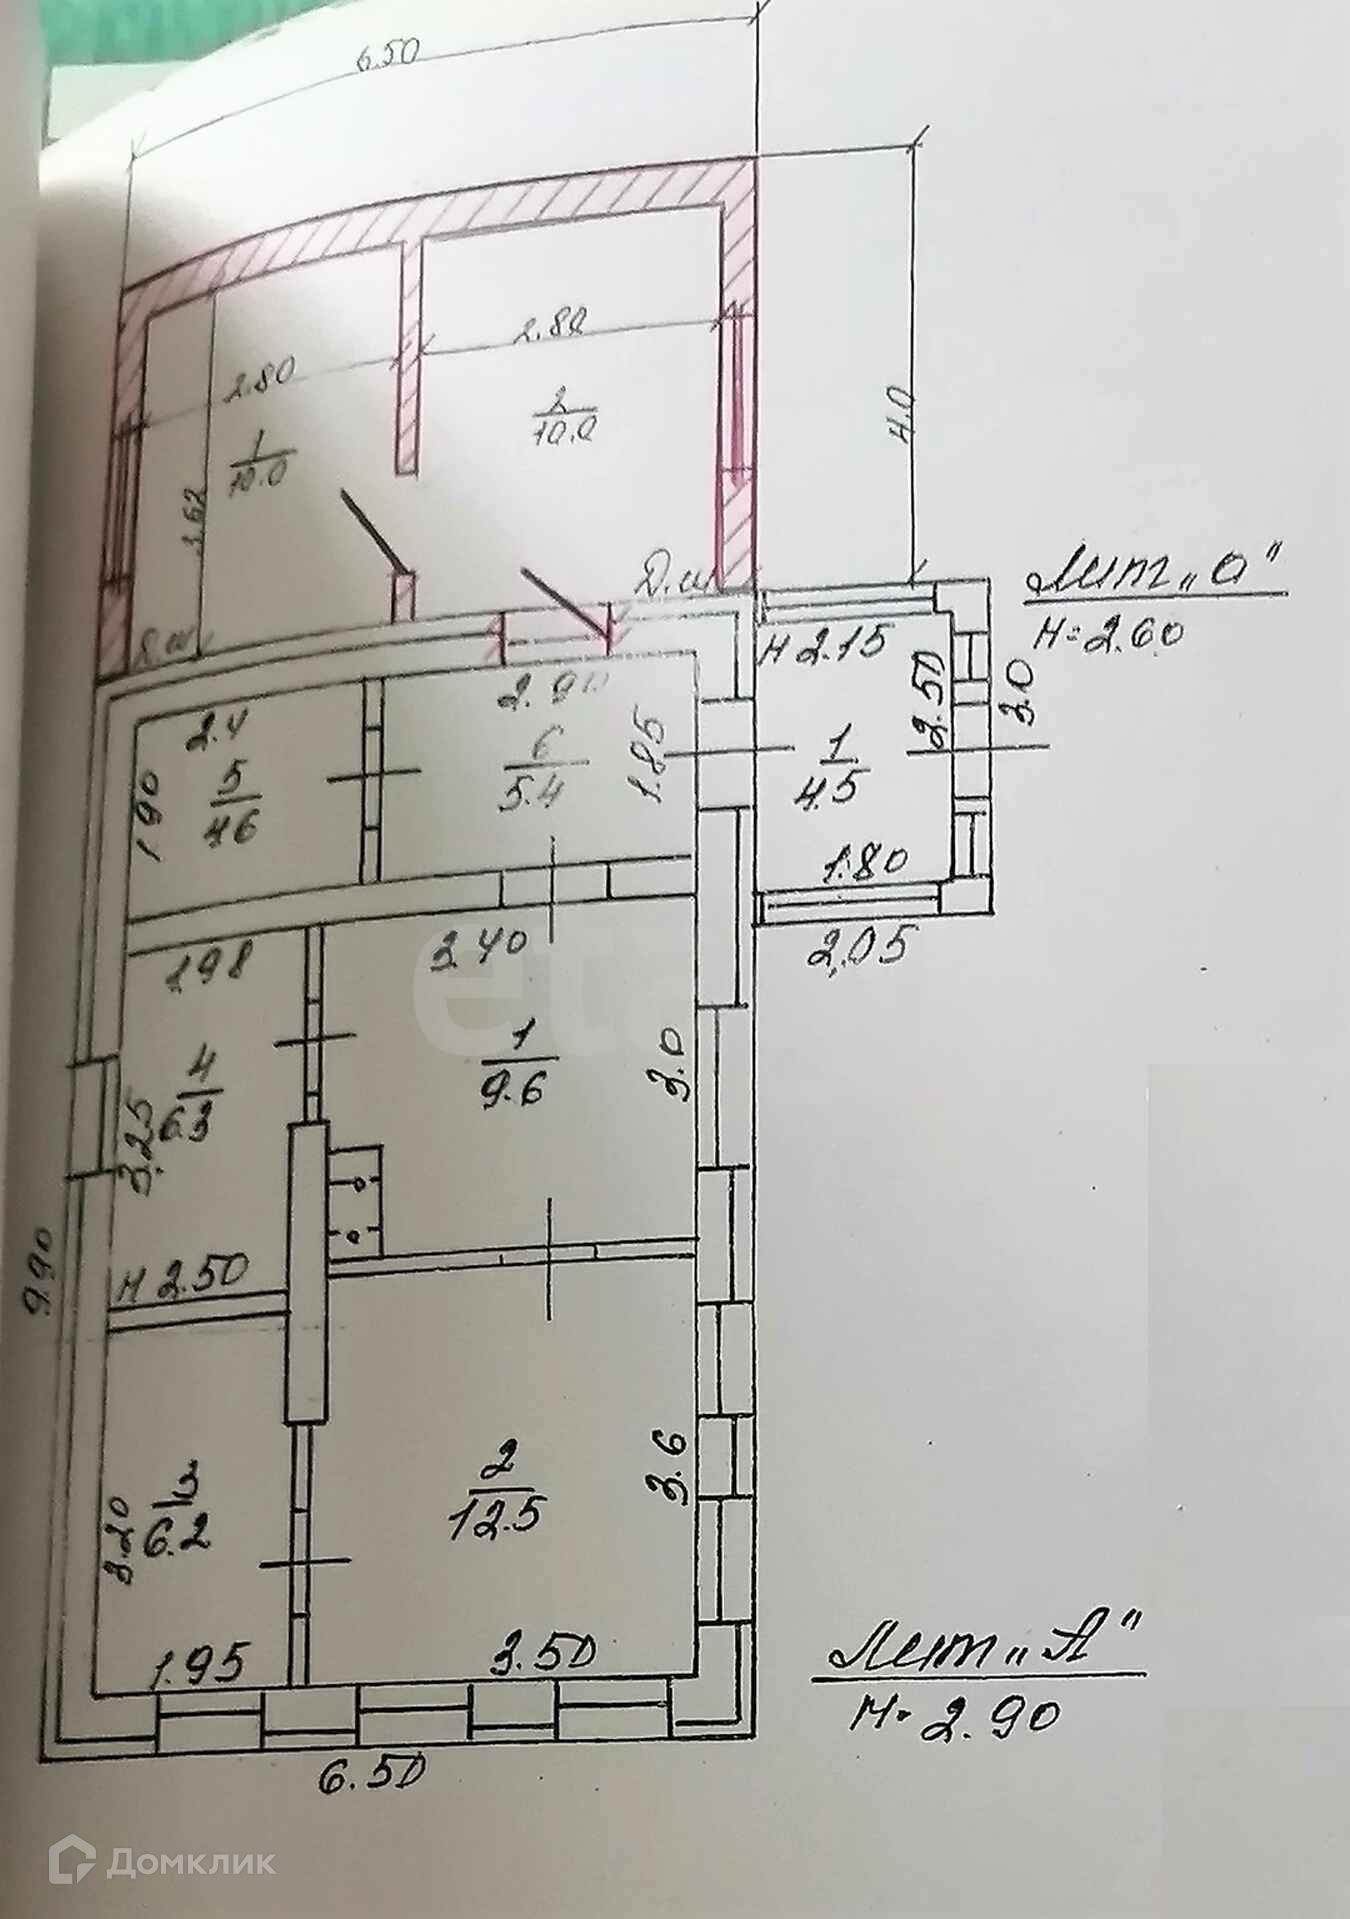 6.50
2.80
2.80
1
10.0
2
10.0
3.62
4.0
Д.ш
Лит „а"
H=2.60
H 2.15
2.50
3.0
2.90
2.4
1.85
6
5.4
1
4.5
5
4.6
1.90
1.80
2.05
1.98
3.40
4
6.3
3.25
1
9.6
3.0
H 2.50
9.90
2
12.5
3.6
3
6.2
3.20
1.95
3.50
Лит „А"
H=2.90
6.50
Домклик